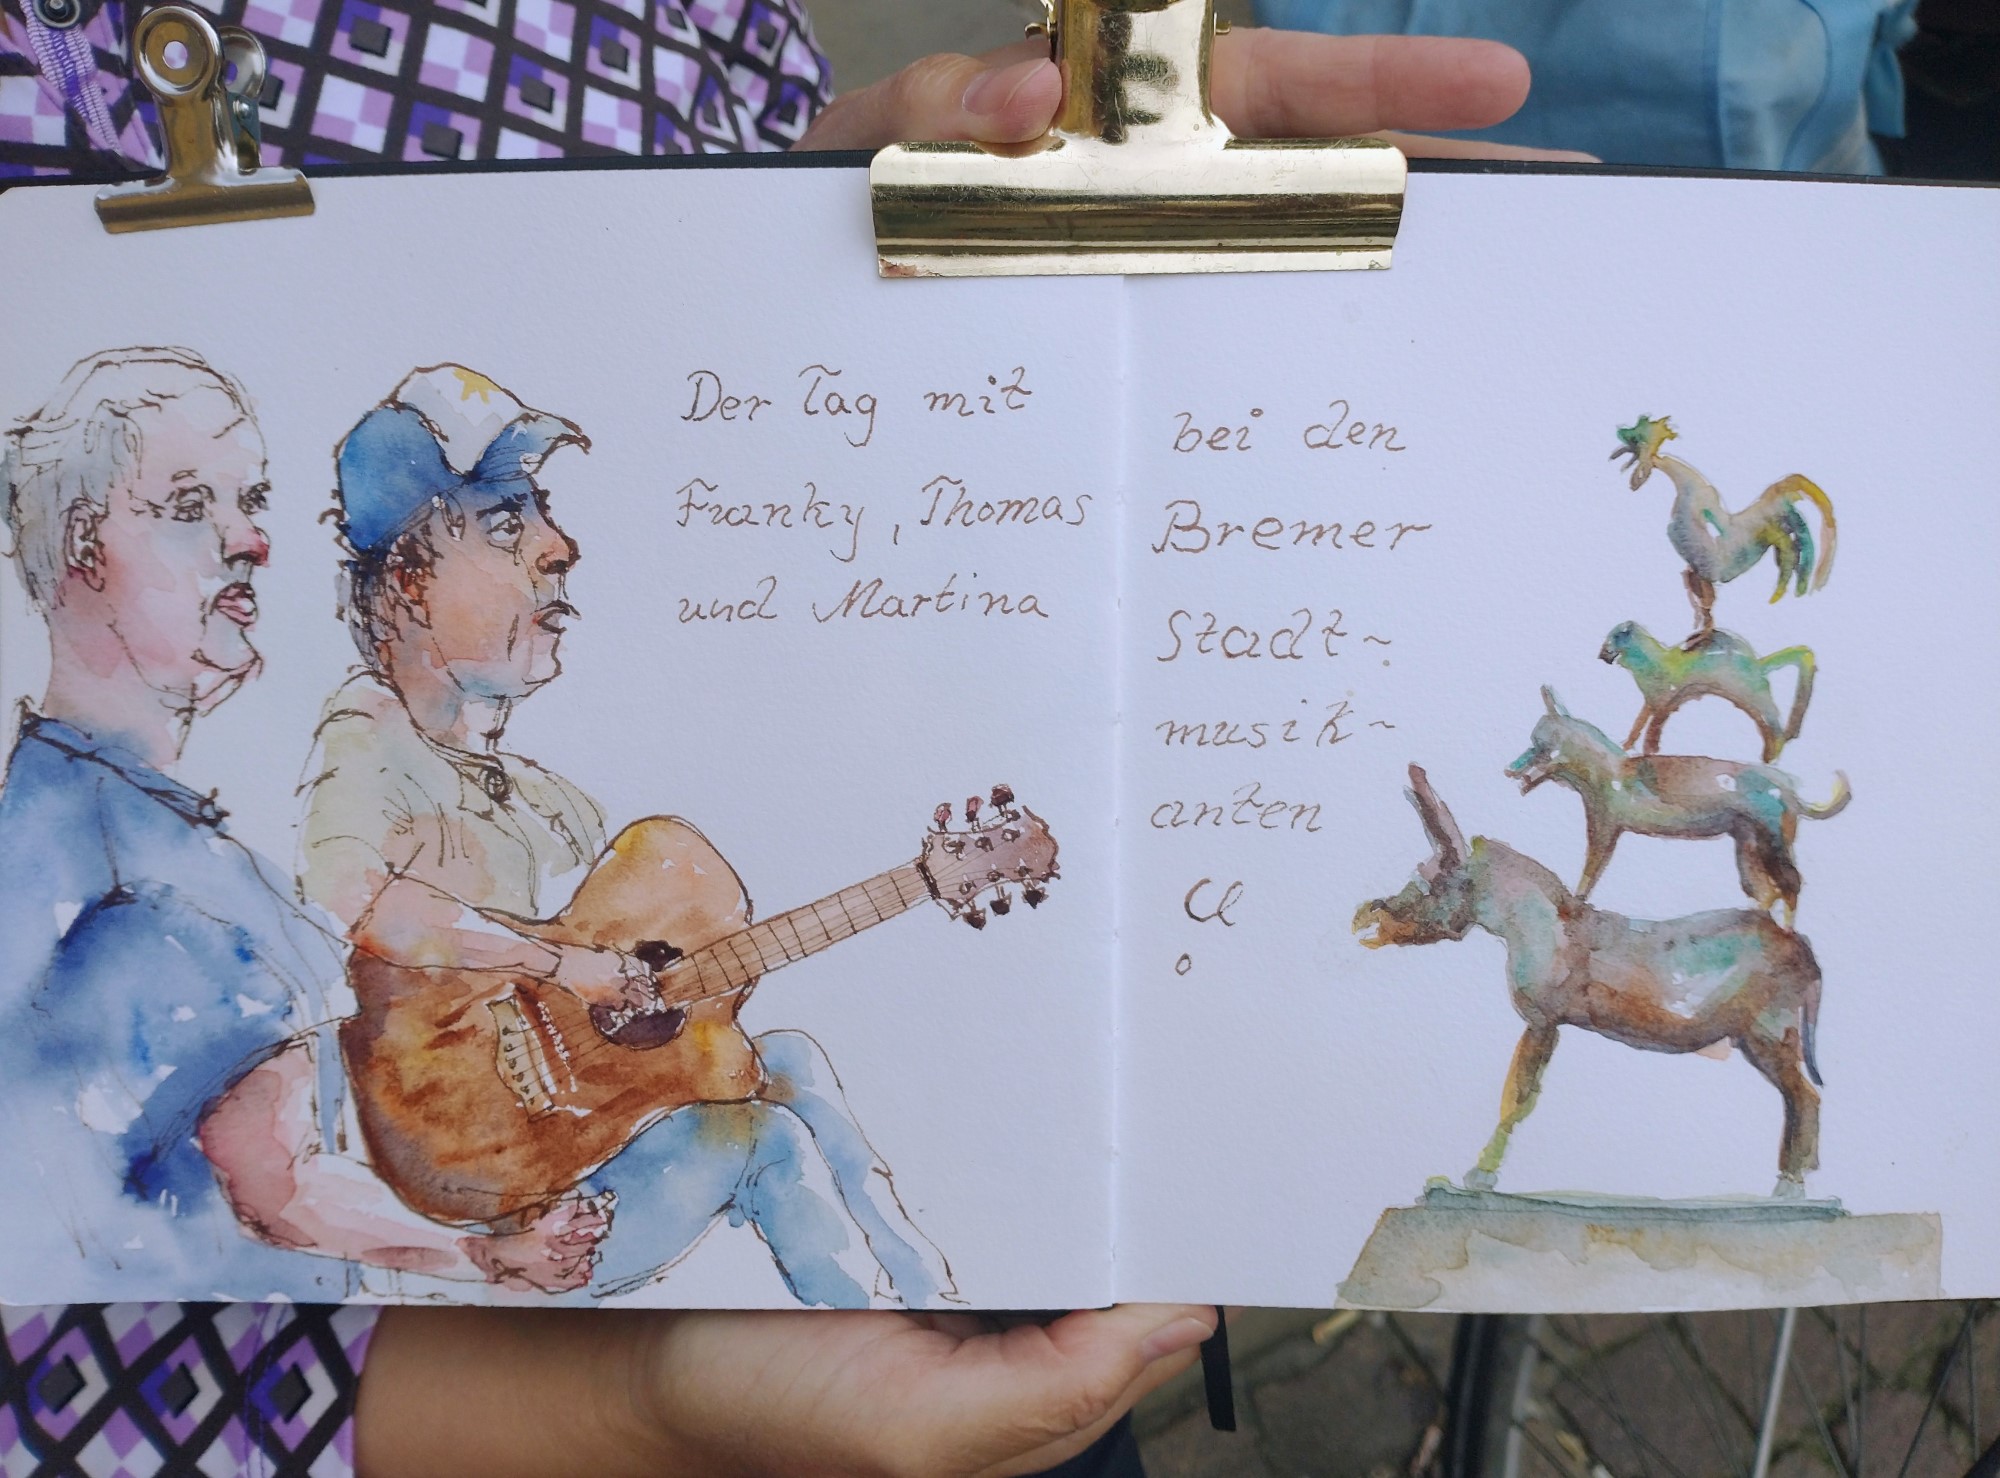 Der Tag mit
Franky, Thomas
und Martina
bei den
Bremer
Stadt~
musik~
anten